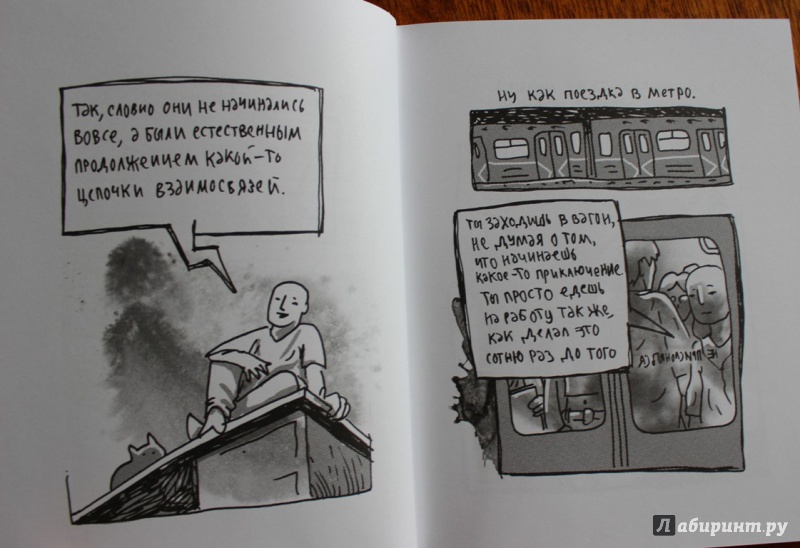 Так, словно они не начинались
вовсе, а были естественным
продолжением какой-то
цепочки взаимосвязей.
Ну как поездка в метро.
Ты заходишь в вагон,
не думая о том,
что начинаешь
какое-то приключение
Ты просто едешь
на работу так же,
как делал это
сотню раз до того
НЕ ПРИСЛОНЯТЬСЯ
Лабиринт.ру